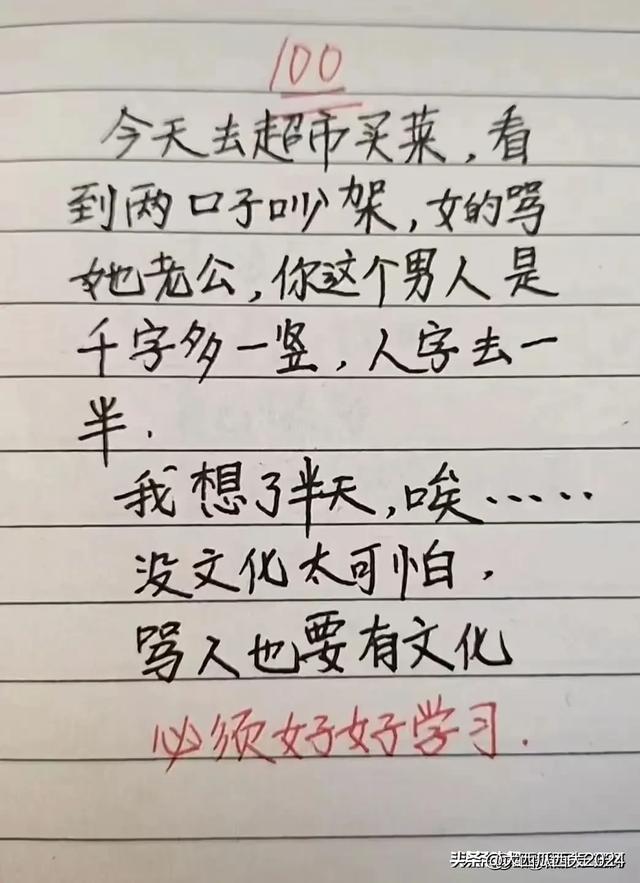 100
今天去超市买菜,看
到两口子吵架,女的骂
她老公,你这个男人是
千字多一竖,人字去一
半.
我想了半天,唉……
没文化太可怕.
骂人也要有文化
必须好好学习.